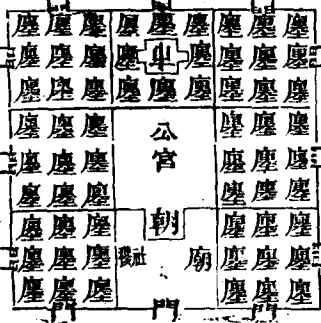 門 門 門
廛廛廛廛廛廛廛廛廛
廛廛廛廛市廛廛廛廛
廛廛廛廛廛廛廛廛廛
廛廛廛公廛廛廛
廛廛廛宮廛廛廛
廛廛廛廛廛廛
廛廛廛朝廛廛廛
廛廛廛社稷廟廛廛廛
廛廛廛廛廛廛
門 門 門